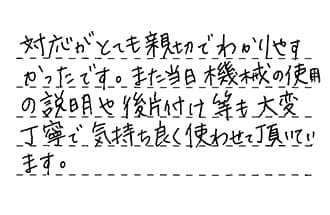 対応がとても親切でわかりやす
かったです。また当日機械の使用
の説明や後片付け等も大変
丁寧で気持ち良く使わせて頂いてい
ます。